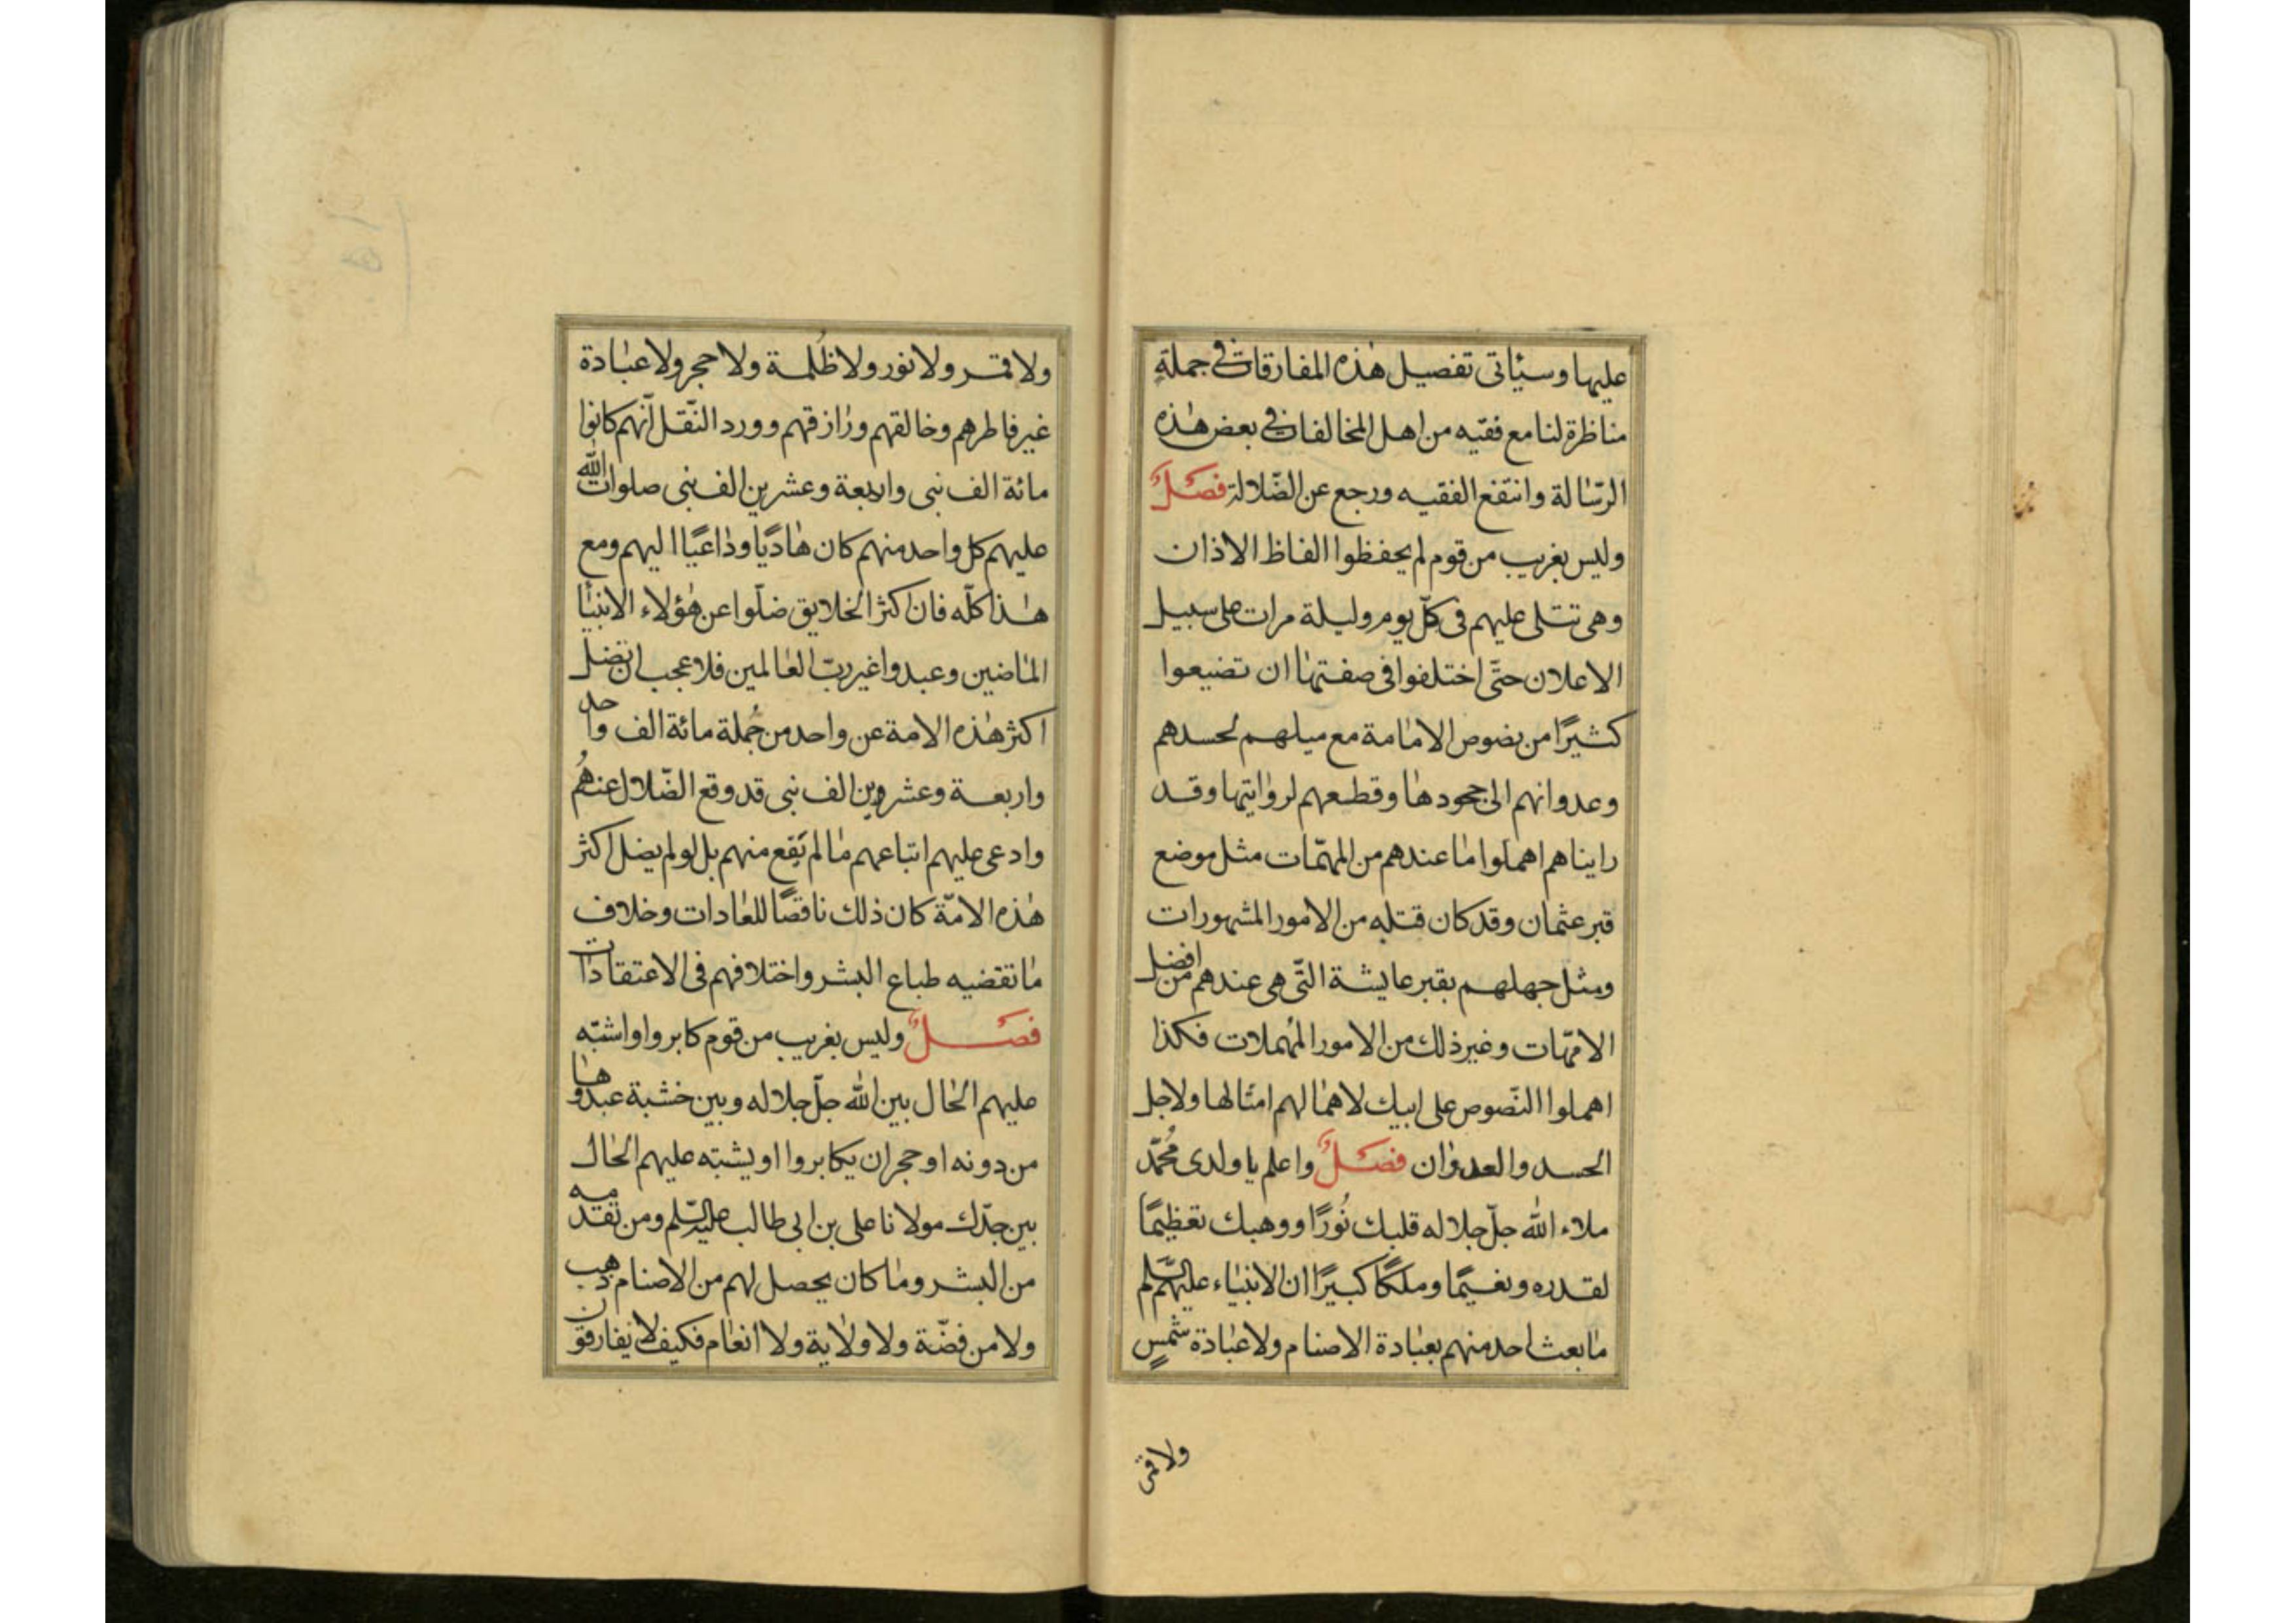 عليها وسيأتى تفصيل هذه المفارقات فى جملة
مناظرة لنا مع فقيه من اهل المخالفات فى بعض هذه
الرسالة وانتفع الفقيه ورجع عن الضّلالة فصلٌ
وليس بغريب من قوم لم يحفظوا الفاظ الاذان
وهى تتلى عليهم فى كلّ يوم وليلة مرات على سبيل
الاعلان حتّى اختلفوا فى صفتها ان تضيعوا
كثيرًا من نصوص الامامة مع ميلهم لحسدهم
وعدوانهم الى جحودها وقطعهم لروايتها وقد
رايناهم اهملوا ما عندهم من المهمّات مثل موضع
قبر عثمان وقد كان قتله من الامور المشهورات
ومثل جهلهم بقبر عايشة التّى هى عندهم من افضل
الامّهات وغير ذلك من الامور المهملات فكذا
اهملوا النّصوص على ابيك لاهمالهم امثالها ولاجل
الحسد والعدوان فصلٌ واعلم يا ولدى مُحمّد
ملاء الله جلّ جلاله قلبك نُورًا ووهبك تعظيمًا
لقدره ونعيمًا وملكًا كبيرًا ان الانبياء عليهم السّلم
ما بعث احد منهم بعبادة الاصنام ولا عبادة شمسٍ
ولا قمر
ولا قمر ولا نور ولا ظُلمة ولا حجر ولا عبادة
غير فاطرهم وخالقهم ورازقهم وورد النّقل انّهم كانوا
مائة الف نبى واربعة وعشرين الف نبى صلوات الله
عليهم كل واحد منهم كان هاديًا وداعيًا اليهم ومع
هذا كلّه فان اكثر الخلايق ضلّوا عن هؤلاء الانبيا
الماضين وعبدوا غير ربّ العالمين فلا عجب ان تضل
اكثر هذه الامة عن واحد من جُملة مائة الف واحد
واربعة وعشروين الف نبى قد وقع الضّلال عنهُم
وادعى عليهم اتباعهم ما لم يَقع منهم بل لو لم يضل اكثر
هذه الامّة كان ذلك ناقضًا للعادات وخلاف
ما تقتضيه طباع البشر واختلافهم فى الاعتقادات
فصلٌ وليس بغريب من قوم كابروا او اشتبه
عليهم الحال بين الله جلّ جلاله وبين خشبة عبدوها
من دونه او حجر ان يكابروا او يشتبه عليهم الحال
بين جدّك مولانا على بن ابى طالب عليه السّلم ومن تقدمه
من البشر وما كان يحصل لهم من الاصنام ذهب
ولا من فضّة ولا ولاية ولا انعام فكيف لا يفارقون